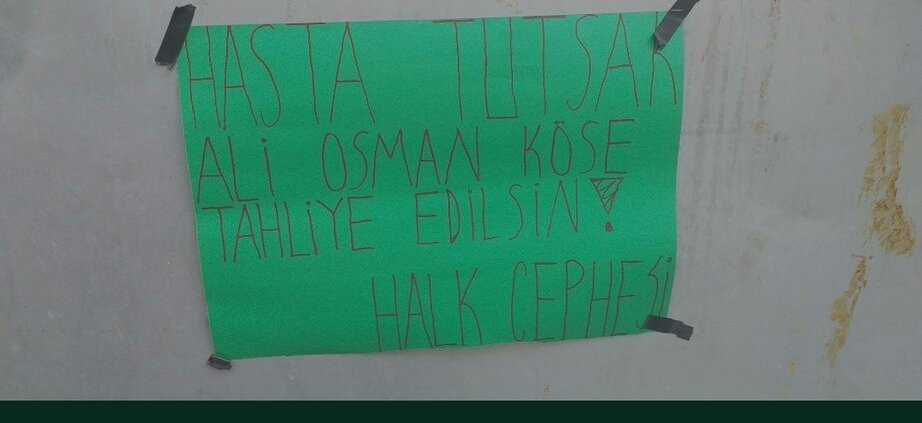 HASTA TUTSAK
ALİ OSMAN KÖSE
TAHLİYE EDİLSİN!
HALK CEPHESİ